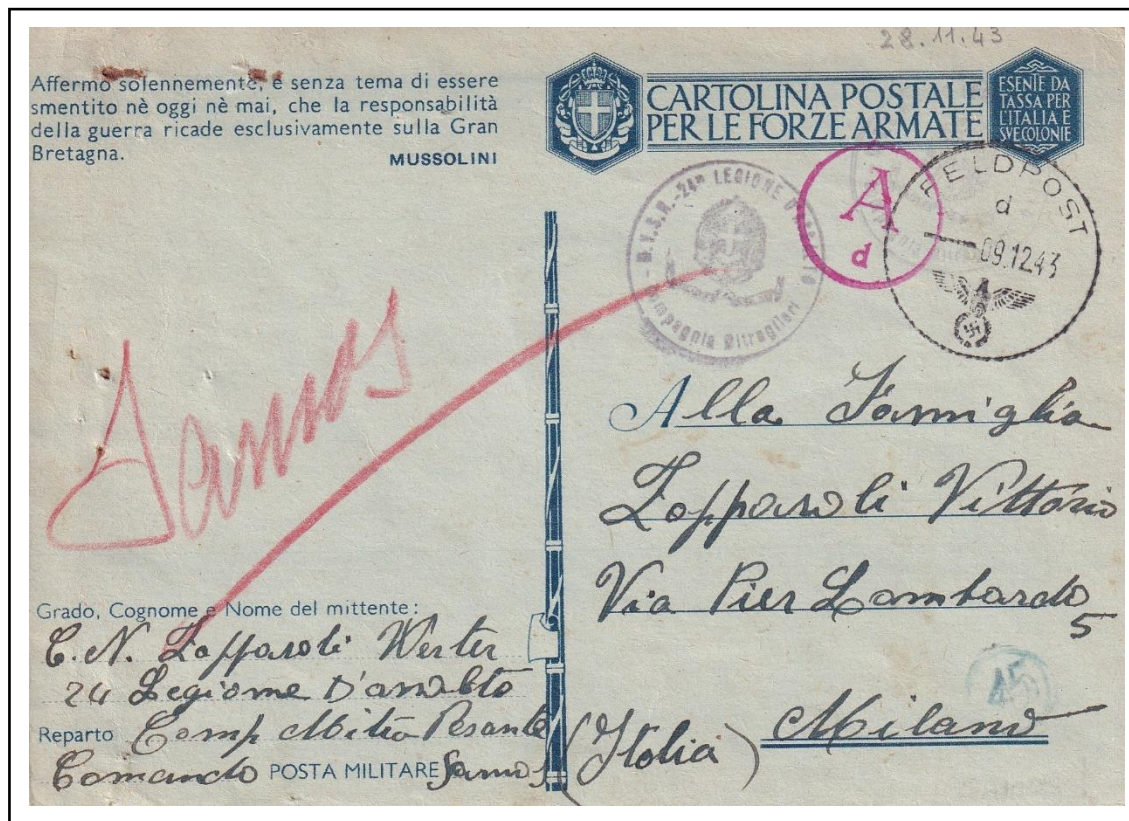 28.11.43
Affermo solennemente, e senza tema di essere
smentito nè oggi nè mai, che la responsabilità
della guerra ricade esclusivamente sulla Gran
Bretagna.
MUSSOLINI
CARTOLINA POSTALE
PER LE FORZE ARMATE
ESENTE DA
TASSA PER
L'ITALIA E
SVE COLONIE
M.V.S.N. - 24ª LEGIONE
Compagnia Mitraglieri
A
d
FELDPOST
d
09.12.43
Samos
Alla Famiglia
Zopparoli Vittorio
Via Pier Lombardo
5
45
Milano
(Italia)
Grado, Cognome e Nome del mittente:
C.N. Zopparoli Werter
24 Legione D'assalto
Reparto Comp Mitra Pesante
Comando POSTA MILITARE Samos